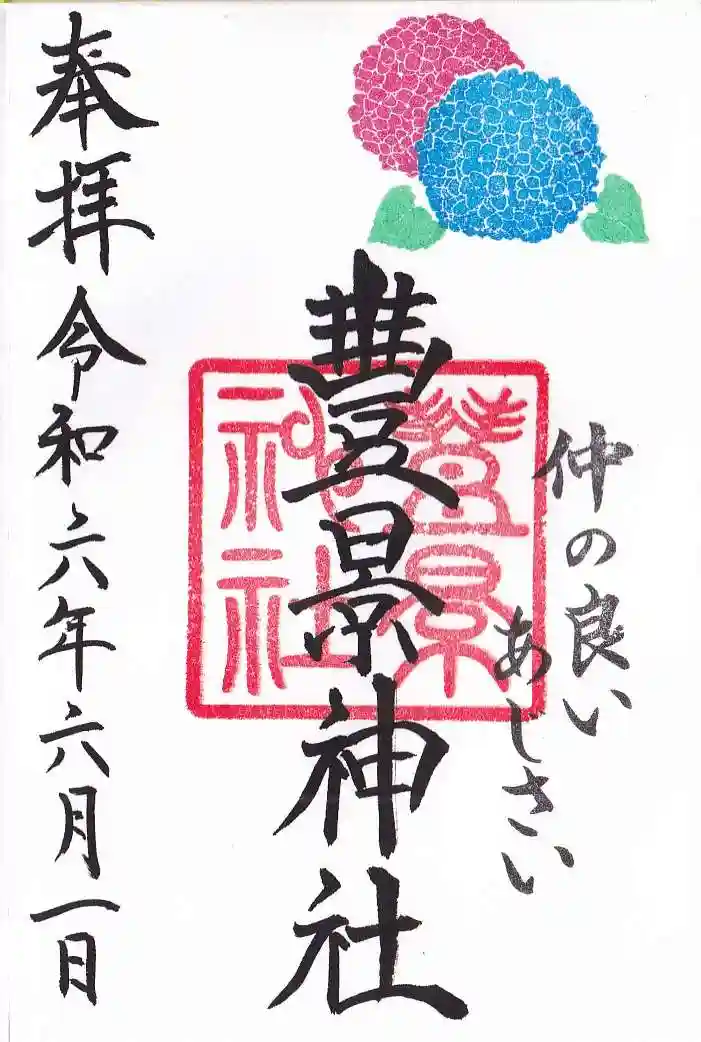 仲の良い
あじさい
豊景神社
豊景
神社
奉拝
令和六年六月一日